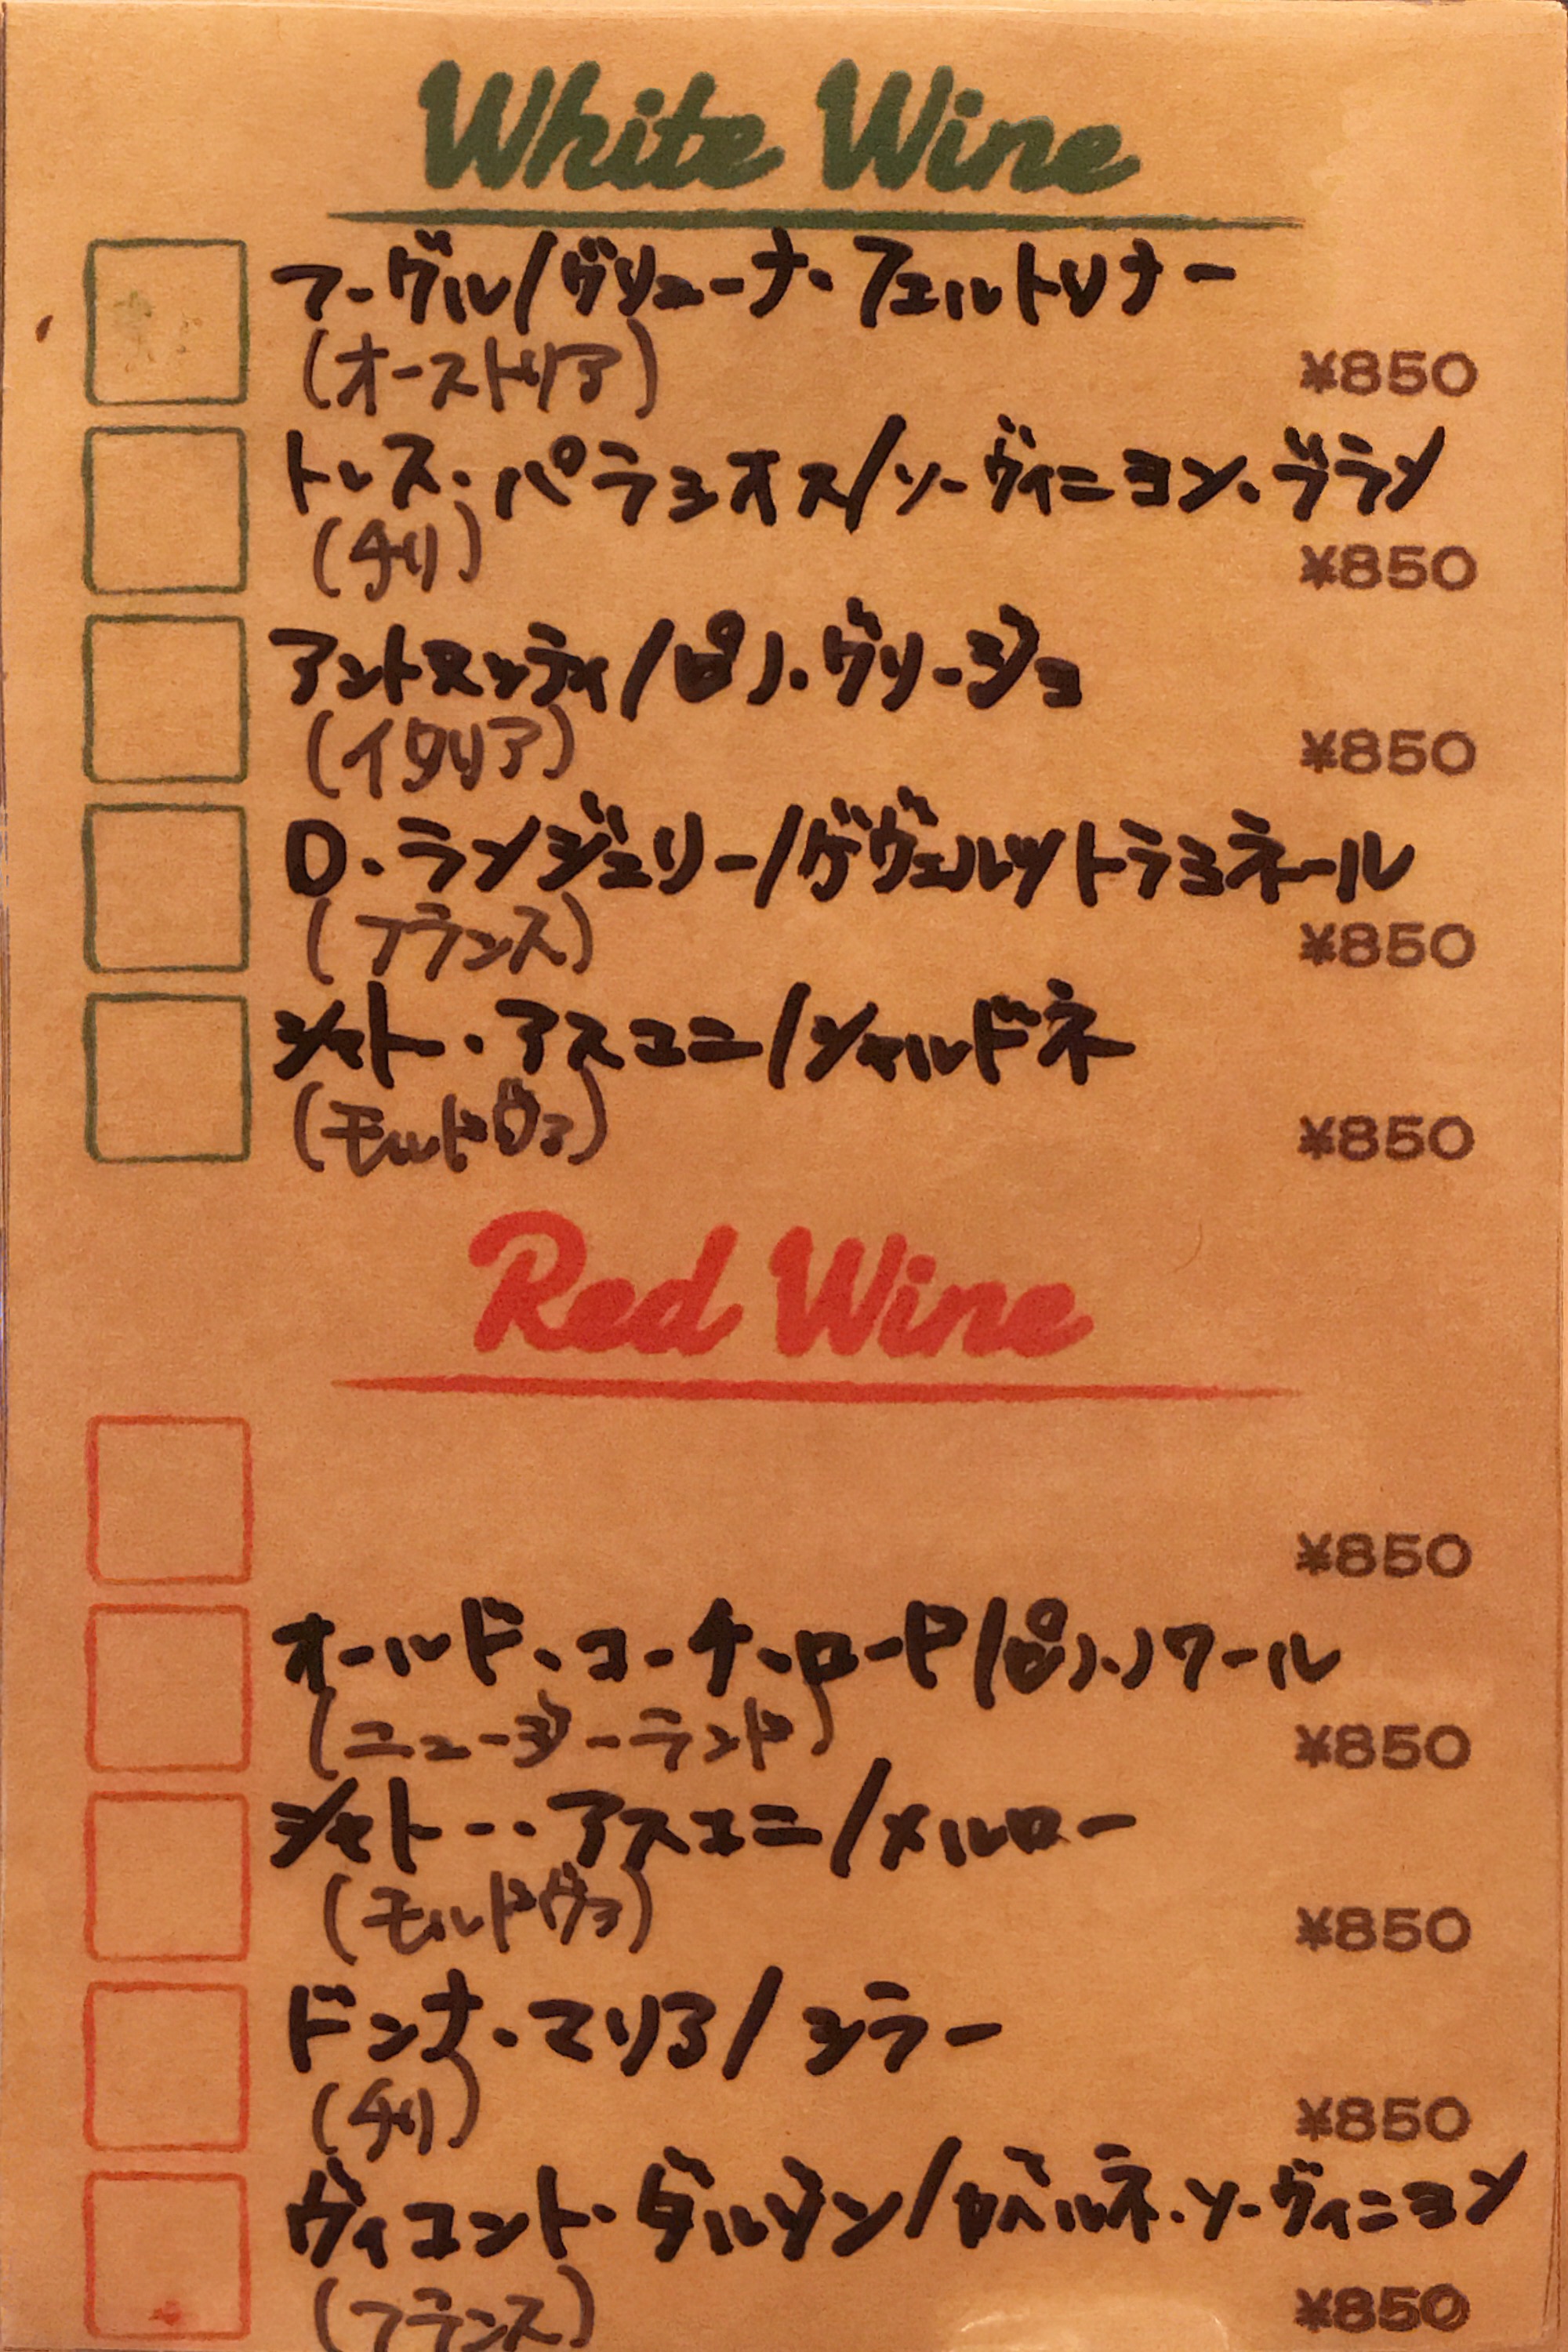 White Wine
フーグル/グリューナ・フェルトリナー
(オーストリア)
¥850
トレス・パラシオス/ソーヴィニヨン・ブラン
(チリ)
¥850
アントヌッティ/ピノ・グリージョ
(イタリア)
¥850
D.ランジュリー/ゲヴェルツトラミネール
(フランス)
¥850
シャトー・アスコニ/シャルドネ
(モルドヴァ)
¥850
Red Wine
¥850
オールド・コーチ・ロード/ピノ・ノワール
(ニュージーランド)
¥850
シャトー・アスコニ/メルロー
(モルドヴァ)
¥850
ドンナ・マリア/シラー
(チリ)
¥850
ヴィコント・ダルジン/カベルネ・ソーヴィニヨン
(フランス)
¥850